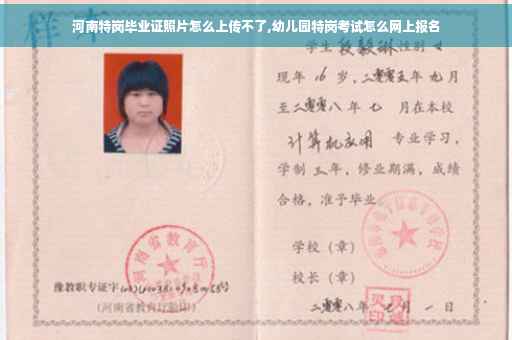 河南特岗毕业证照片怎么上传不了,幼儿园特岗考试怎么网上报名
样本
学生 段毅琳 性别 女
现年 16 岁,二零零五年 九月
至二零零八年 七 月在本校
计算机应用 专业学习,
学制 三 年,修业期满,成绩
合格,准予毕业。
学校(章)
校长(章)
二零零八年 七 月 一 日
河南省教育厅
豫教职专证字
(河南省教育厅验印)